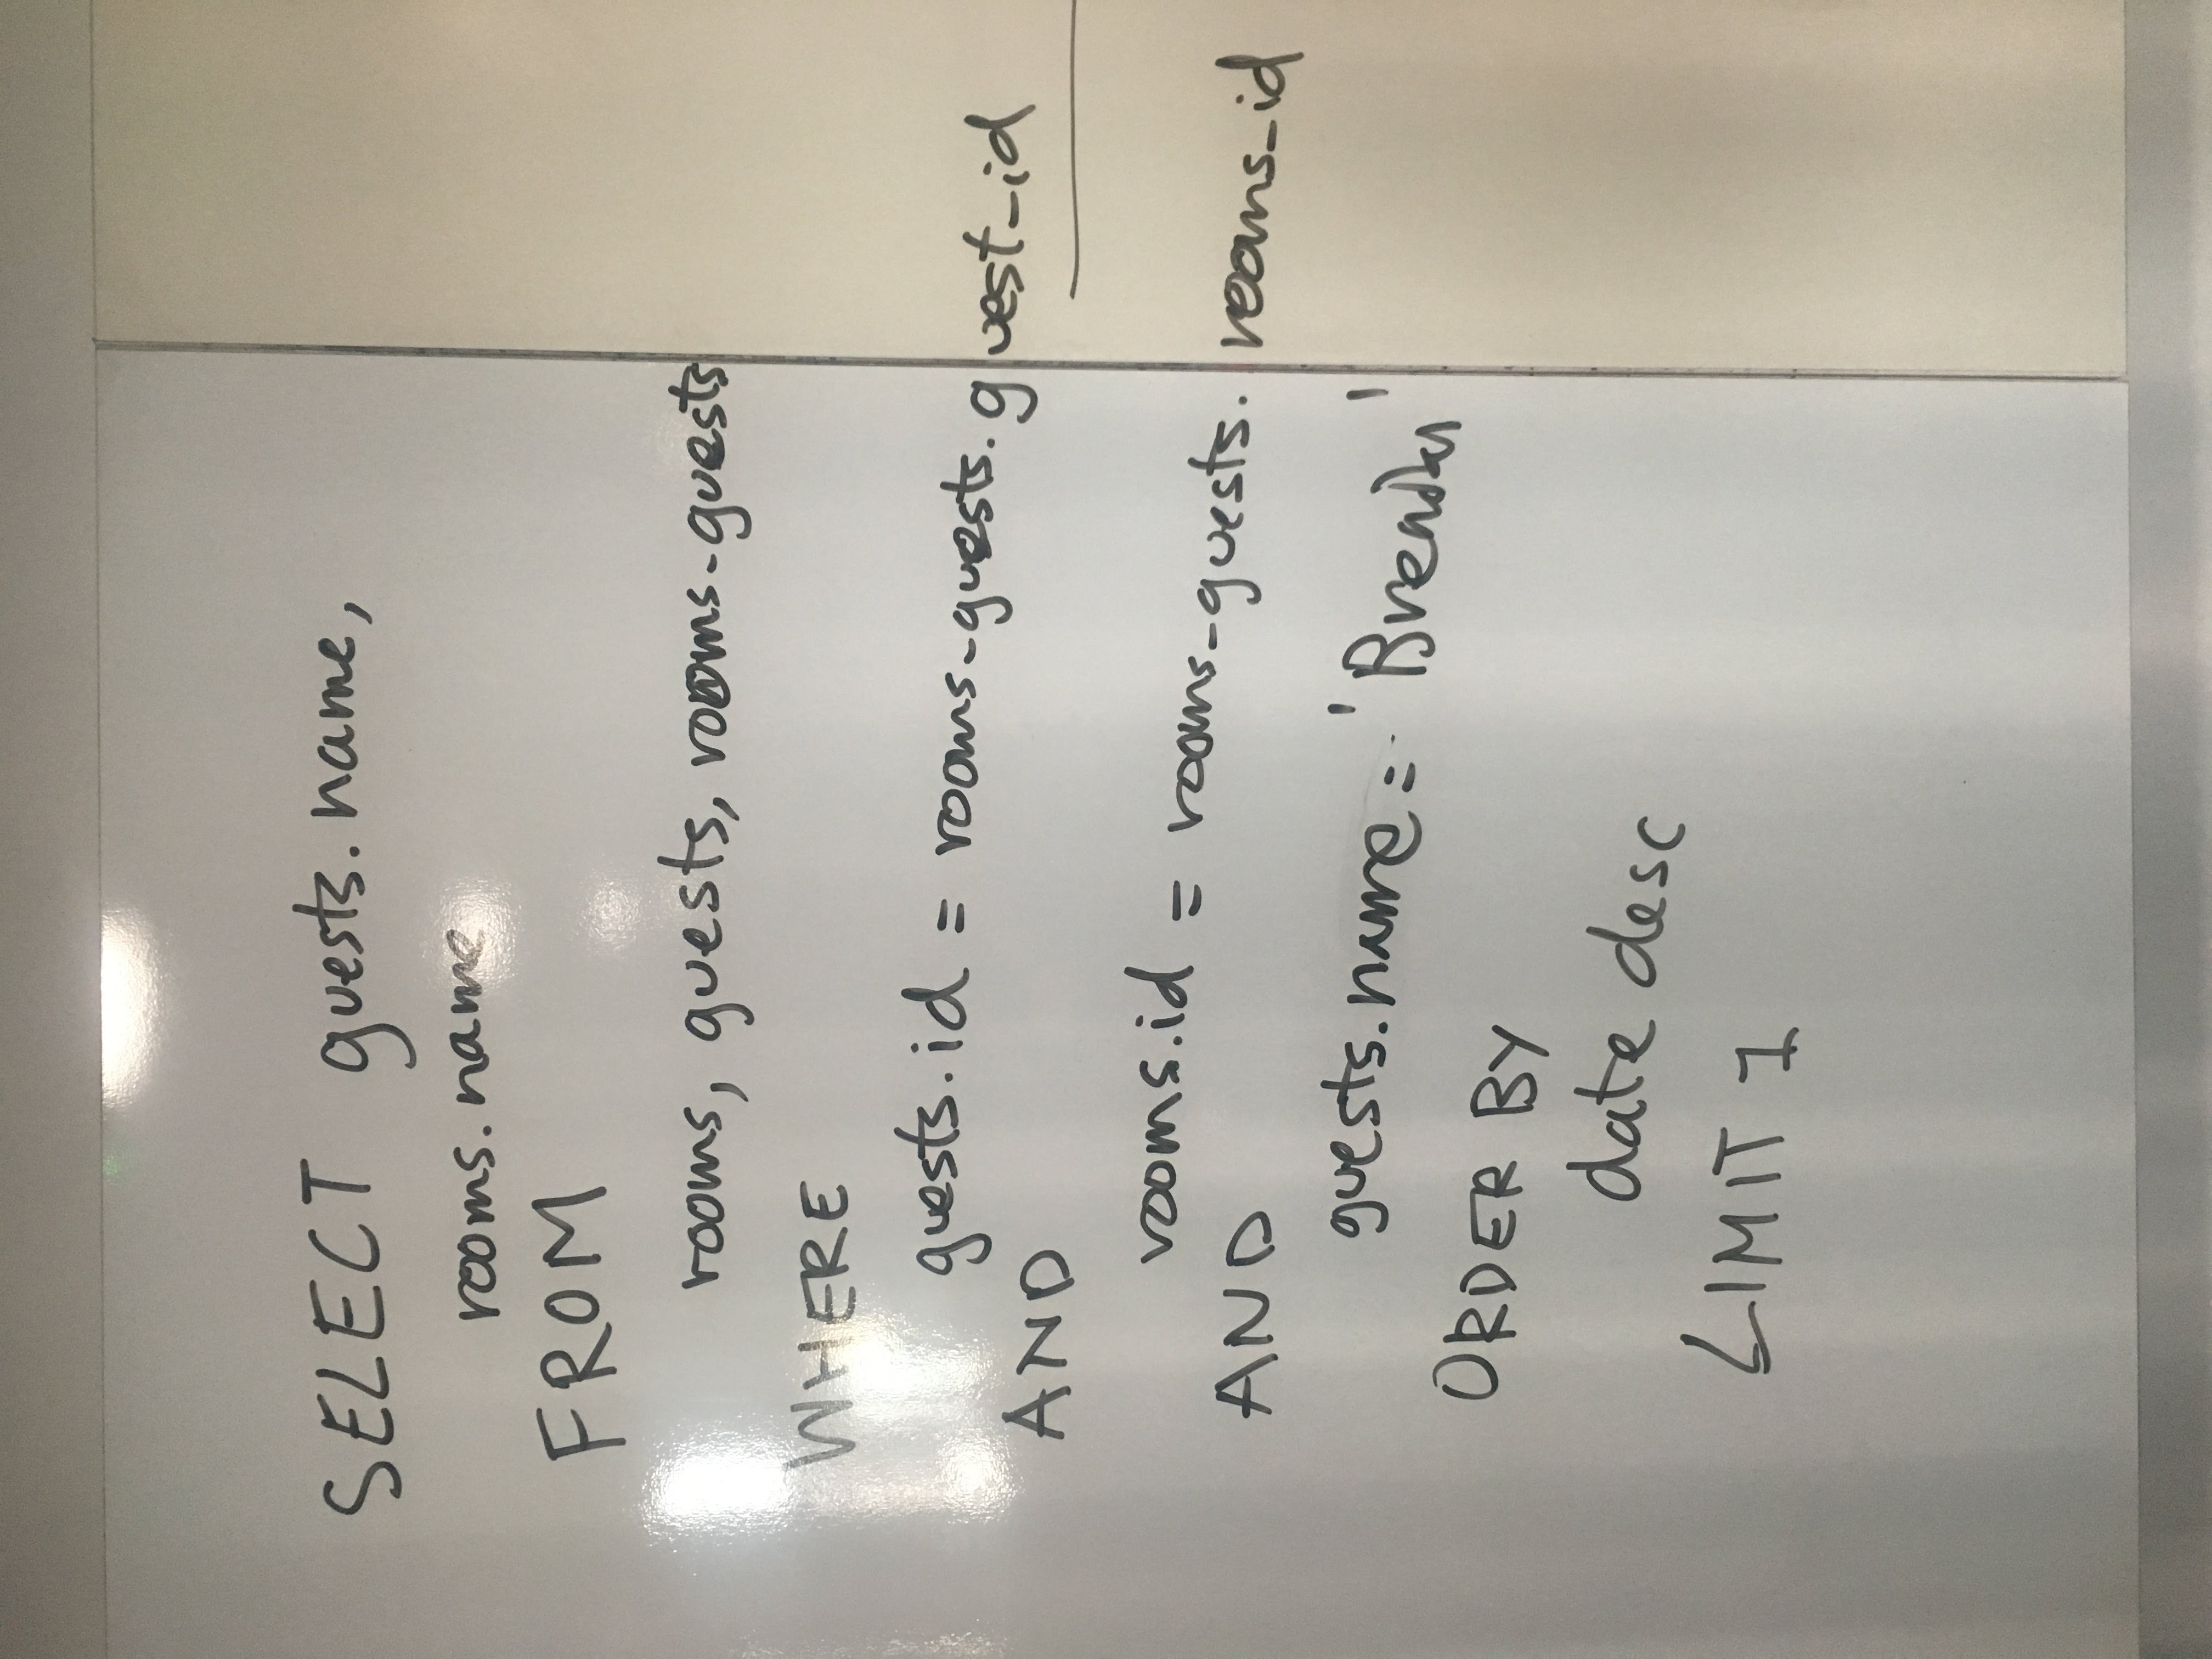 SELECT guests.name,
rooms.name
FROM
rooms, guests, rooms_guests
WHERE
guests.id = rooms_guests.guest_id
AND
rooms.id = rooms_guests.rooms_id
AND
guests.name = 'Brenda'
ORDER BY
date desc
LIMIT 1